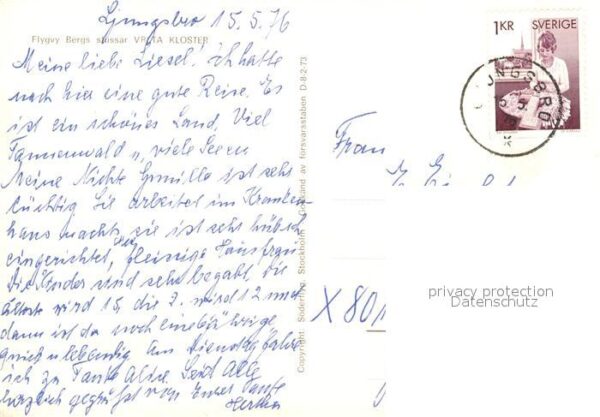 Ljungsbro 15.5.76
Flygvy Bergs slussar VRETA KLOSTER
Meine liebe Liesel! ich hatte
nach hier eine gute Reise. Es
ist ein schönes Land. Viel
Tannenwald u. viele Seen
Meine Nichte Gunilla ist sehr
tüchtig Sie arbeitet im Kranken-
haus nachts, sie ist sehr hübsch
eingerichtet, fleissige Hausfrau
Die Kinder sind sehr begabt, die
älteste wird 15, die 2. wird 12 und
dann ist da noch eine
lebendig Am Dienstag fahre
ich zu Tante Alice. Seid Alle
herzlich gegrüßt von Eurer Tante
Hertha
Copyright Söderströms Stockholm Godkänd av försvarsstaben D-8-2-73
1 KR SVERIGE
LJUNGSBRO
Frau
X 80/
privacy protection
Datenschutz